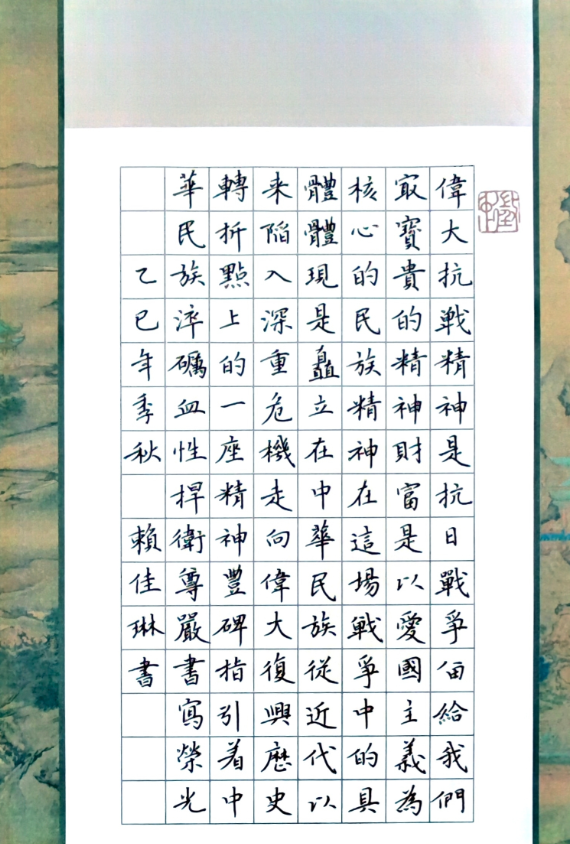 偉大抗戰精神是抗日戰爭留給我們
最寶貴的精神財富是以愛國主義為
核心的民族精神在這場戰爭中的具
體體現是矗立在中華民族從近代以
来陷入深重危機走向偉大復興歷史
轉折點上的一座精神豐碑指引着中
華民族淬礪血性捍衛尊嚴書寫榮光
乙巳年季秋 賴佳琳書